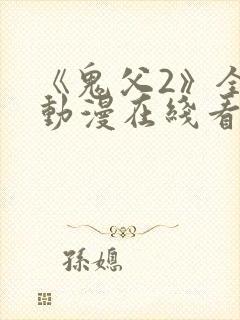 《鬼父2》全
動漫在綫看
孫媳